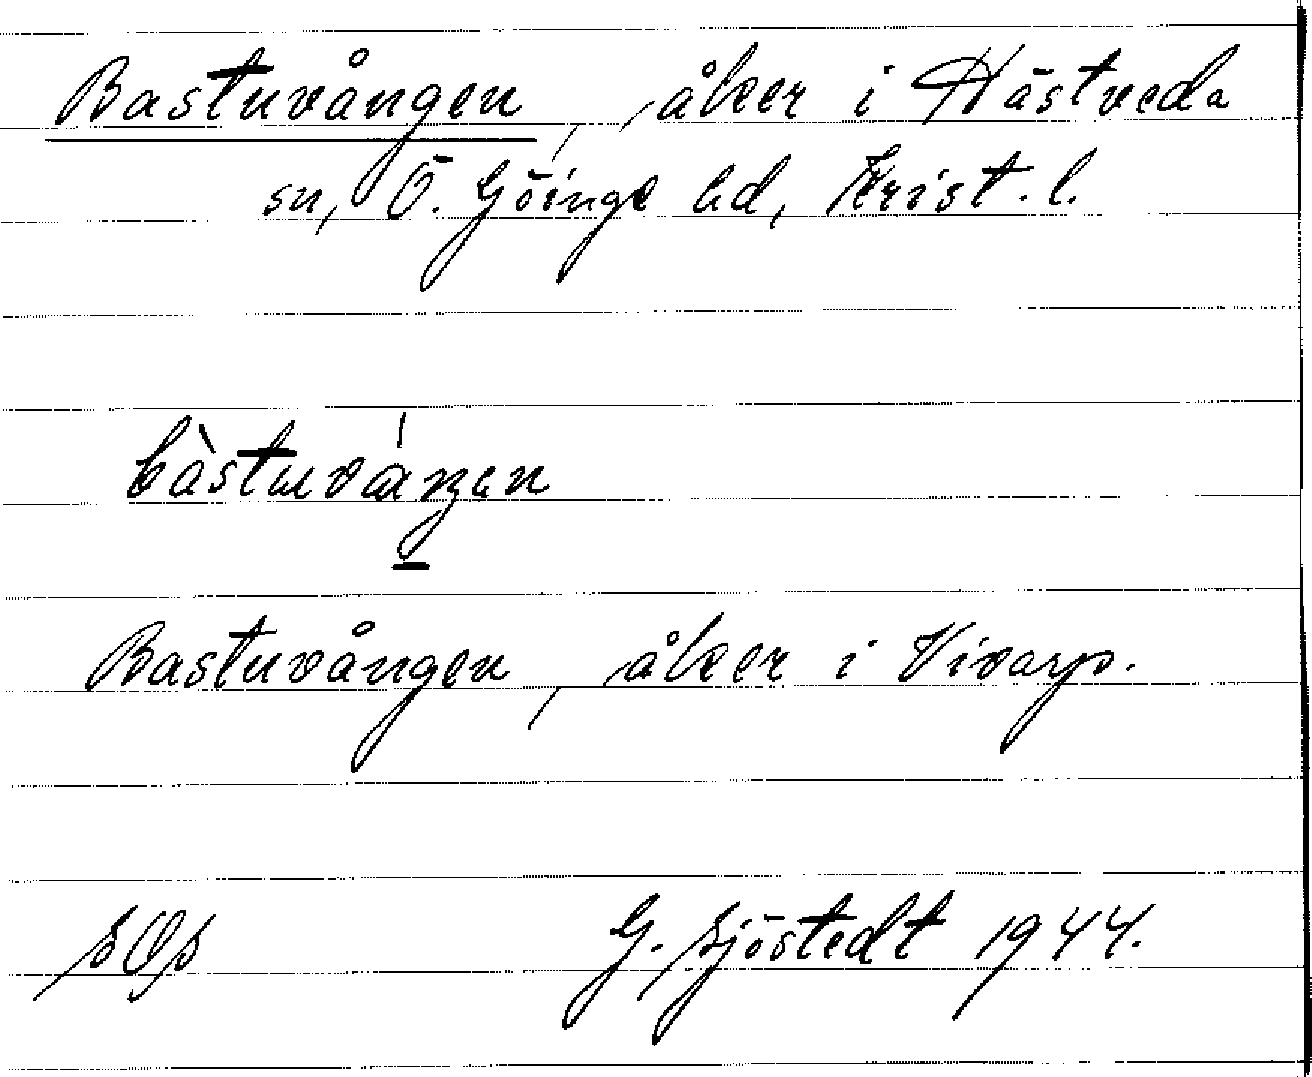 Bastuvången, åker i Hästveda
sn, Ö. Göinge hd, Krist. l.
Bastuvången, åker i Vivarp.
G. Sjöstedt 1944.